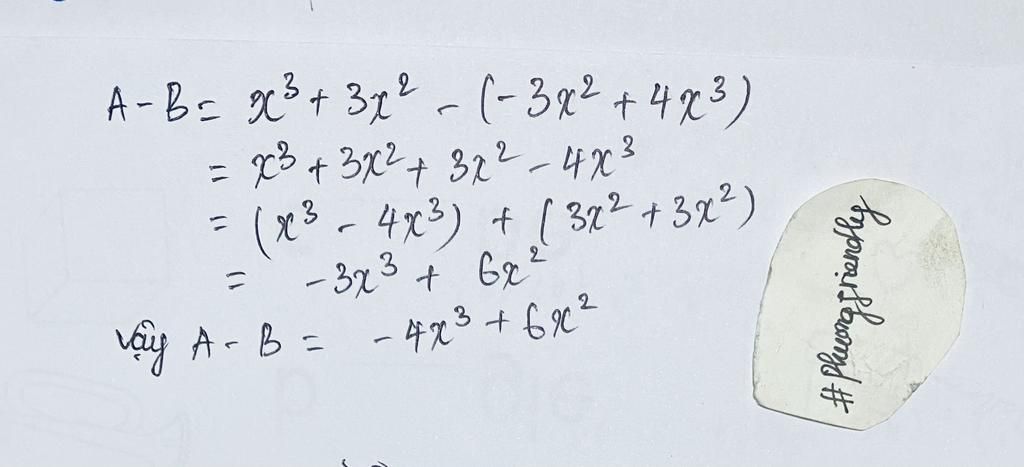 A - B = x³ + 3x² - (-3x² + 4x³)
= x³ + 3x² + 3x² - 4x³
= (x³ - 4x³) + (3x² + 3x²)
= -3x³ + 6x²
vậy A - B = -4x³ + 6x²
#phuongfriendly